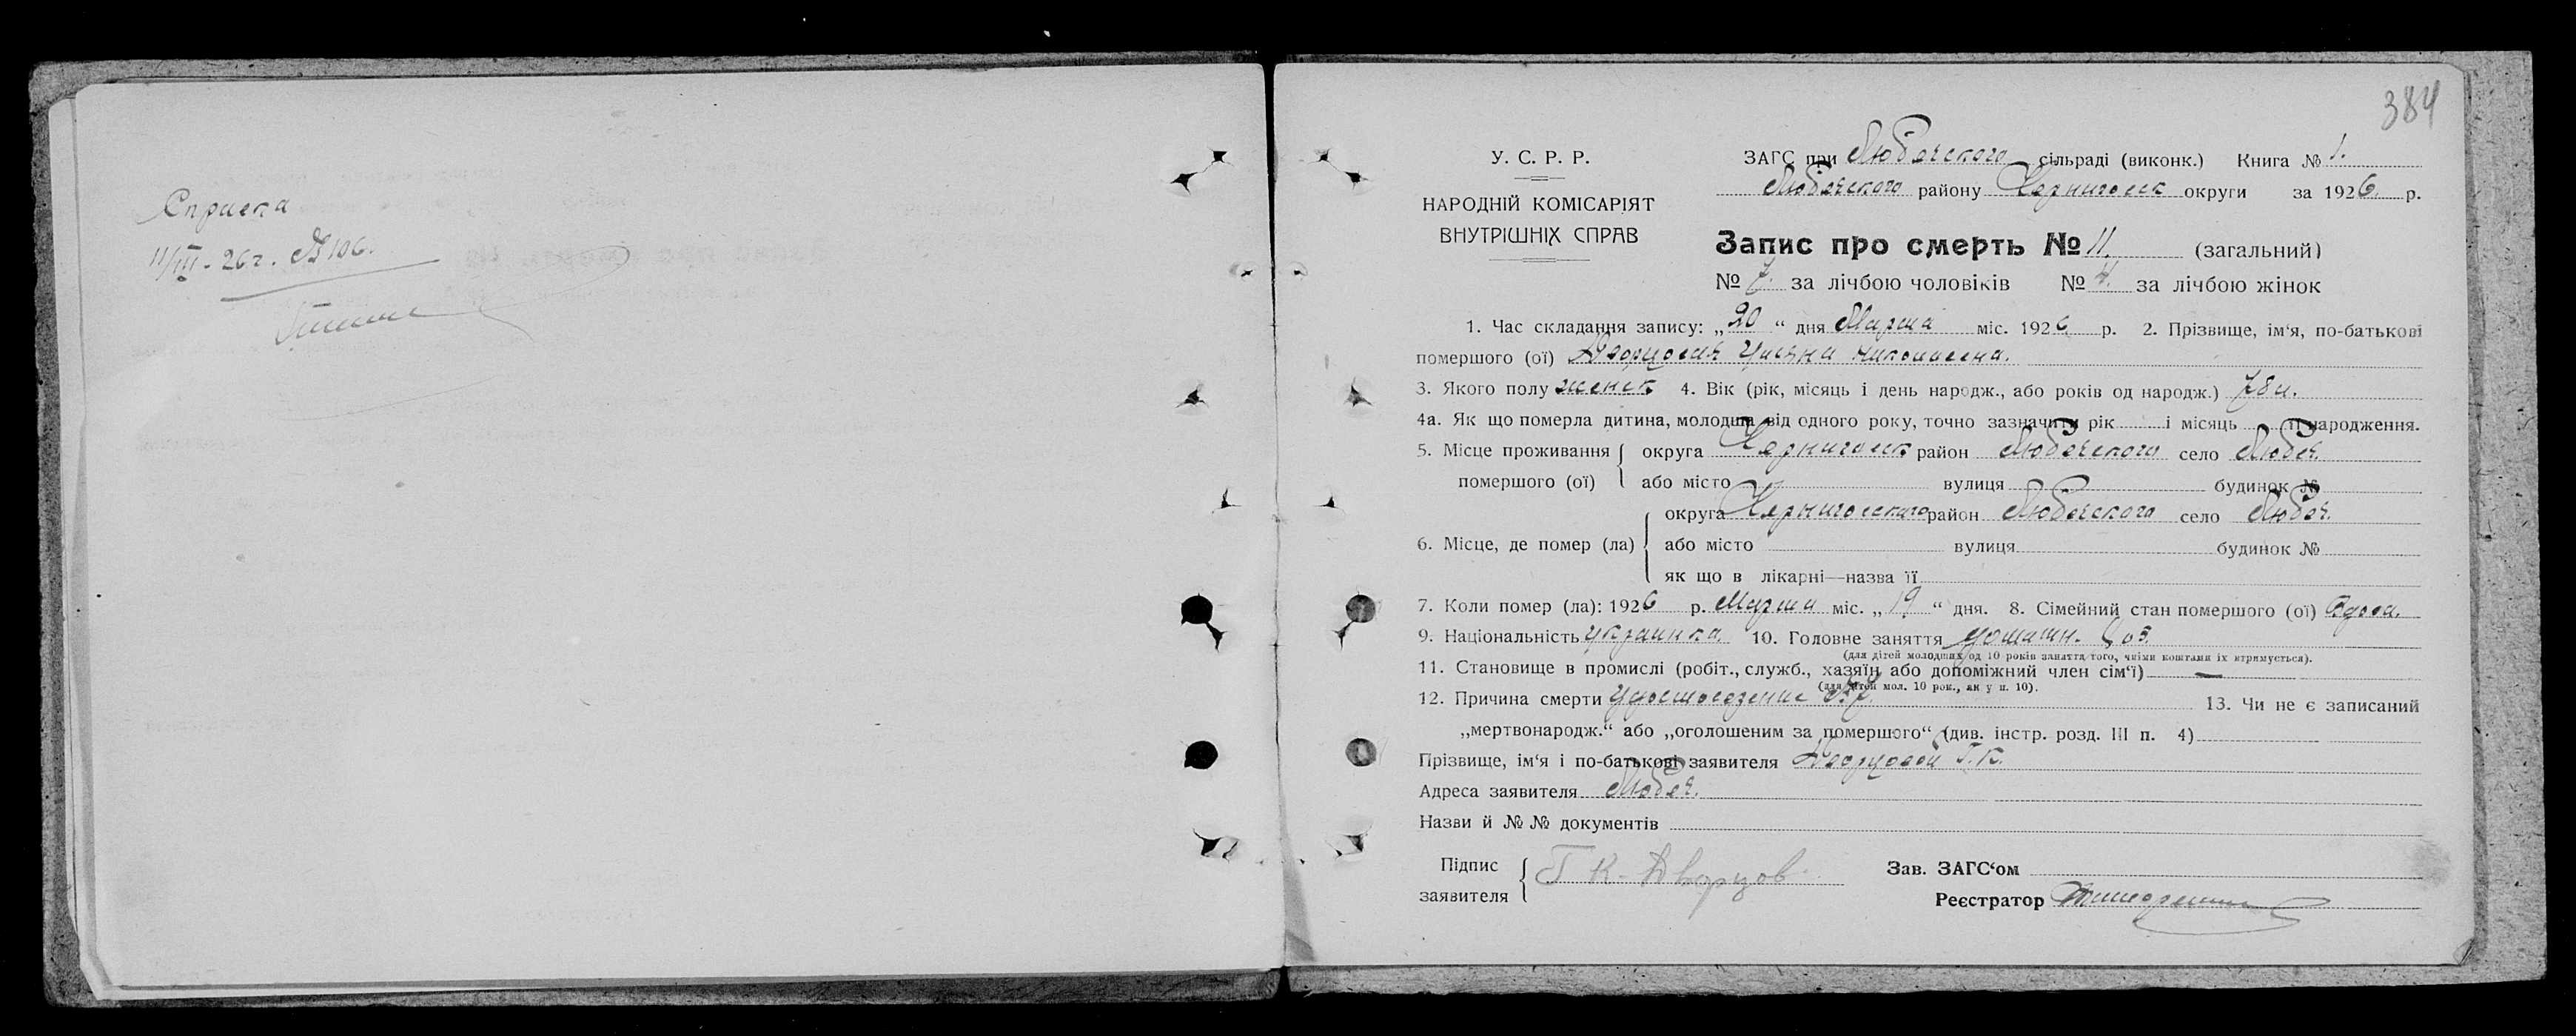 Справка
11/III - 26 г. № 106.
384
У. С. Р. Р.
НАРОДНІЙ КОМІСАРІЯТ
ВНУТРІШНІХ СПРАВ
ЗАГС при Любечского сільраді (виконк.) Книга № 1.
Любечского району Черниговск округи за 1926. р.
Запис про смерть № 11. (загальний)
№ 7. за лічбою чоловіків № 4. за лічбою жінок
1. Час складання запису: „20“ дня Марта міс. 1926 р. 2. Прізвище, ім‘я, по-батькові
помершого (ої) Николаевна.
3. Якого полу женск 4. Вік (рік, місяць і день народж., або років од народж.) 78 л.
4а. Як що померла дитина, молодша від одного року, точно зазначити рік і місяць її народження.
5. Місце проживання округа Черниговск район Любечского село Любеч.
помершого (ої) або місто вулиця будинок №
округа Черниговского район Любечского село Любеч.
6. Місце, де помер (ла) або місто вулиця будинок №
як що в лікарні—назва її
7. Коли помер (ла): 1926 р. Марта міс. „19“ дня. 8. Сімейний стан помершого (ої) Вдова.
9. Національність украинка 10. Головне заняття домашн. хоз.
(для дітей молодших од 10 років заняття того, чиїми коштами їх втримується).
11. Становище в промислі (робіт., служб., хазяїн або допоміжний член сім‘ї) —
(для дітей мол. 10 рок., як у п. 10).
12. Причина смерти удостоверение № 7. 13. Чи не є записаний
„мертвонародж.“ або „оголошеним за помершого“ (див. інстр. розд. III п. 4)
Прізвище, ім‘я і по-батькові заявителя Дворцовой Г. К.
Адреса заявителя Любеч.
Назви й №№ документів
Підпис
заявителя Г К. Дворцов
Зав. ЗАГС‘ом
Реєстратор